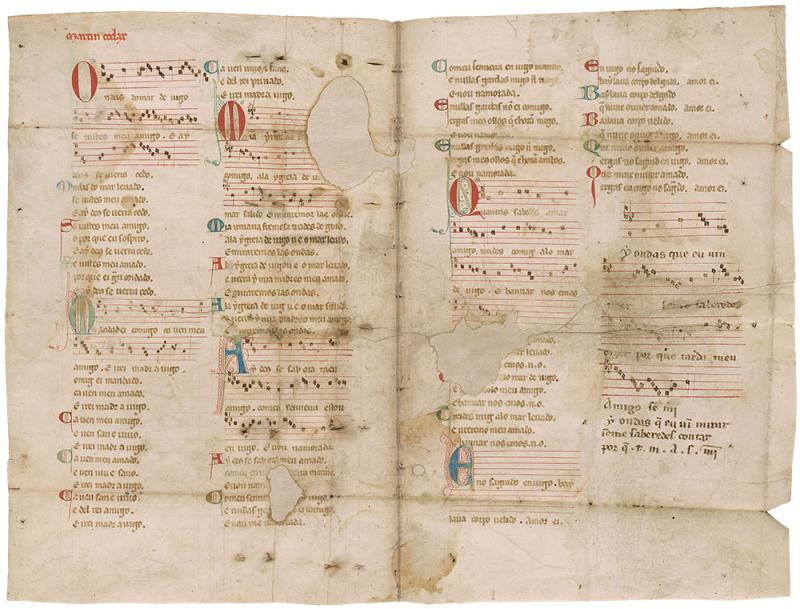 Martin codax
Ondas do mar de uigo
se uistes meu amigo. E ay
deus se uerra cedo.
Ondas do mar leuado.
se uistes meu amado.
E ay deus se uerra cedo.
Se uistes meu amigo.
o por que eu sospiro.
E ay deus se uerra cedo.
Se uistes meu amado.
por que ei gran coidado.
E ay deus se uerra cedo.
Mandad ei comigo ca uen meu
amigo. E irei madr a uigo.
comig ei mandado.
ca uen meu amado.
E irei madr a uigo.
Ca uen meu amigo.
e uen san e uiuo.
E irei madr a uigo.
Ca uen meu amado.
e uen uiue sano.
E irei madr a uigo.
Ca uen san e uiuo.
e del rei amigo.
E irei madr a uigo.
Ca uen uiue sano.
e del rei priuado.
E irei madr a uigo.
Mia
comigo. ala ygreia de ui
mar salido E miraremos las ondas.
Mia irmana fremosa treides de grado.
ala ygreia de uigo u e o mar leuado.
E miraremos las ondas.
A la ygreia de uigo u e o mar leuado.
e uerra y mia madre o meu amado.
E miraremos las ondas.
A la ygreia de uigo u e o mar salido.
e uerra y mia madre o meu amigo.
E miraremos las ondas.
Ay deus se sab ora meu
amigo. comeu senneira estou
en uigo. E uou namorada.
Ay deus se sab ora meu amado.
comeu en uigo senneira
E uou namorada.
Comeu senneira uigo.
e nullas gardas comigo.
E uou namorada.
Comeu senneira en uigo manno.
e nullas gardas migo
E uou namorada.
E nullas gardas non ei comigo.
ergas meus ollos que choran migo.
E uou namorada.
E nullas gardas migo non
ergas meus ollos que choran ambos.
E uou namorada.
Quantas sabedes amar
amigo. treides comig alo mar
de uigo. E bannar nos emos
mar leuado.
emos. n. o.
alo mar de uigo.
meu amigo.
E bannar nos emos. n. o.
Treides mig alo mar leuado.
e ueeremo meu amado.
E bannar nos emos. n. o.
Eno sagrado en uigo. bay
laua corpo uelido. Amor ei.
En uigo no sagrado.
baylaua corpo delgado. amor ei.
Baylaua corpo delgado
que nunc ouuer amado. Amor ei.
Bailaua corpo uelido.
que nunc ouuer amigo. Amor ei.
Que nunc ouuer amigo.
ergas no sagrad en uigo. amor ei.
ergas en uigo no sagrado. amor ei.
Ay ondas que eu uin
ueer se me saberedes
dizer por que tarda meu
Amigo se mi
y ondas que eu uin mirar
se me saberedes contar
por que. t. m. A. s. mi